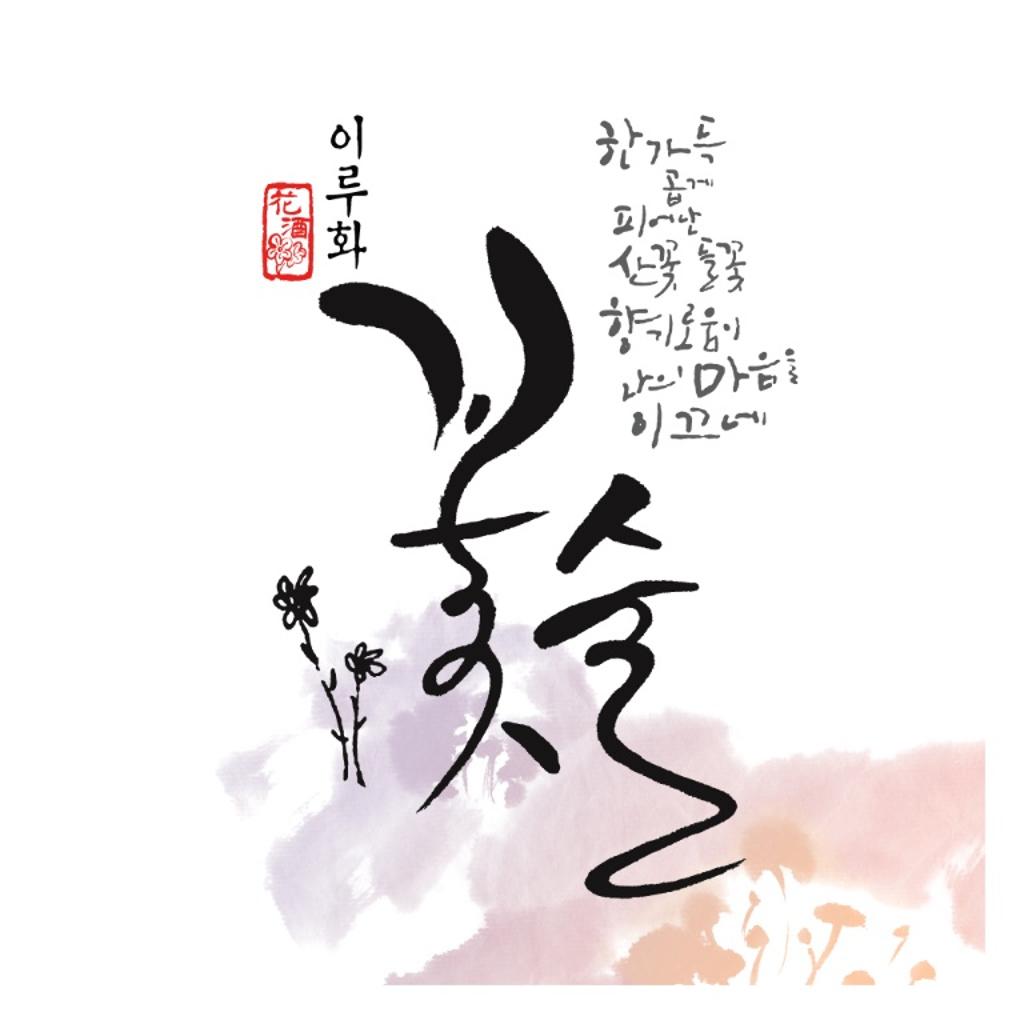 이루화
花酒
꽃술
한가득
곱게
피어난
산꽃 들꽃
향기로움이
나의 마음을
이끄네